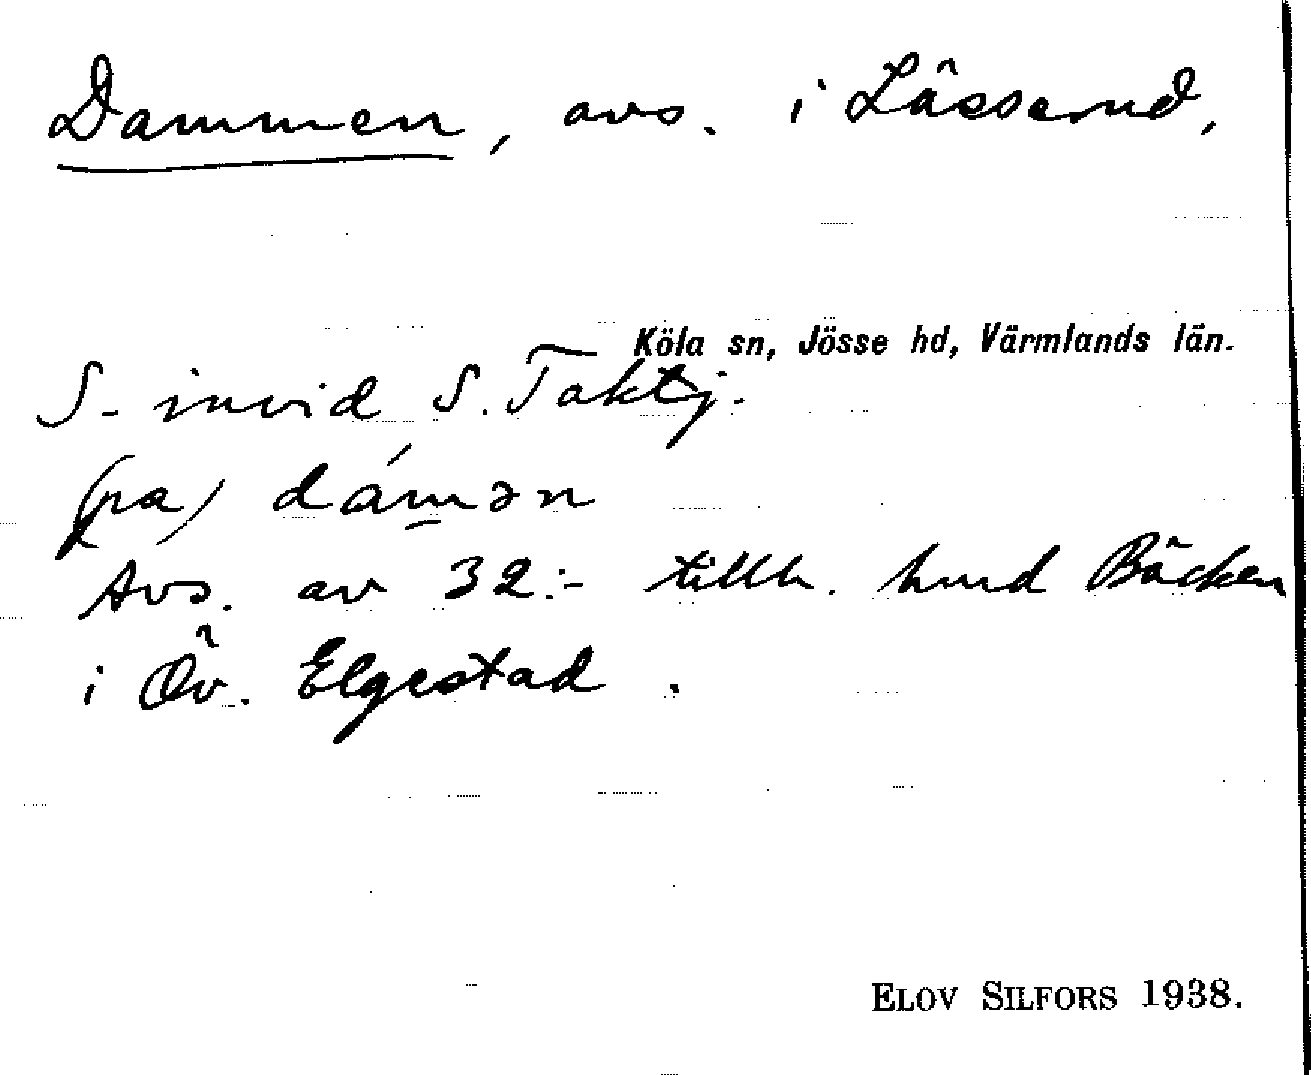 Dammen, avs. i Lässerud,
Köla sn, Jösse hd, Värmlands län.
S- invid S. Taktj.
(pa) dámən
Avs. av 32:- tillh. hmd Bäcken
i Öv. Elgestad.
ELOV SILFORS 1938.